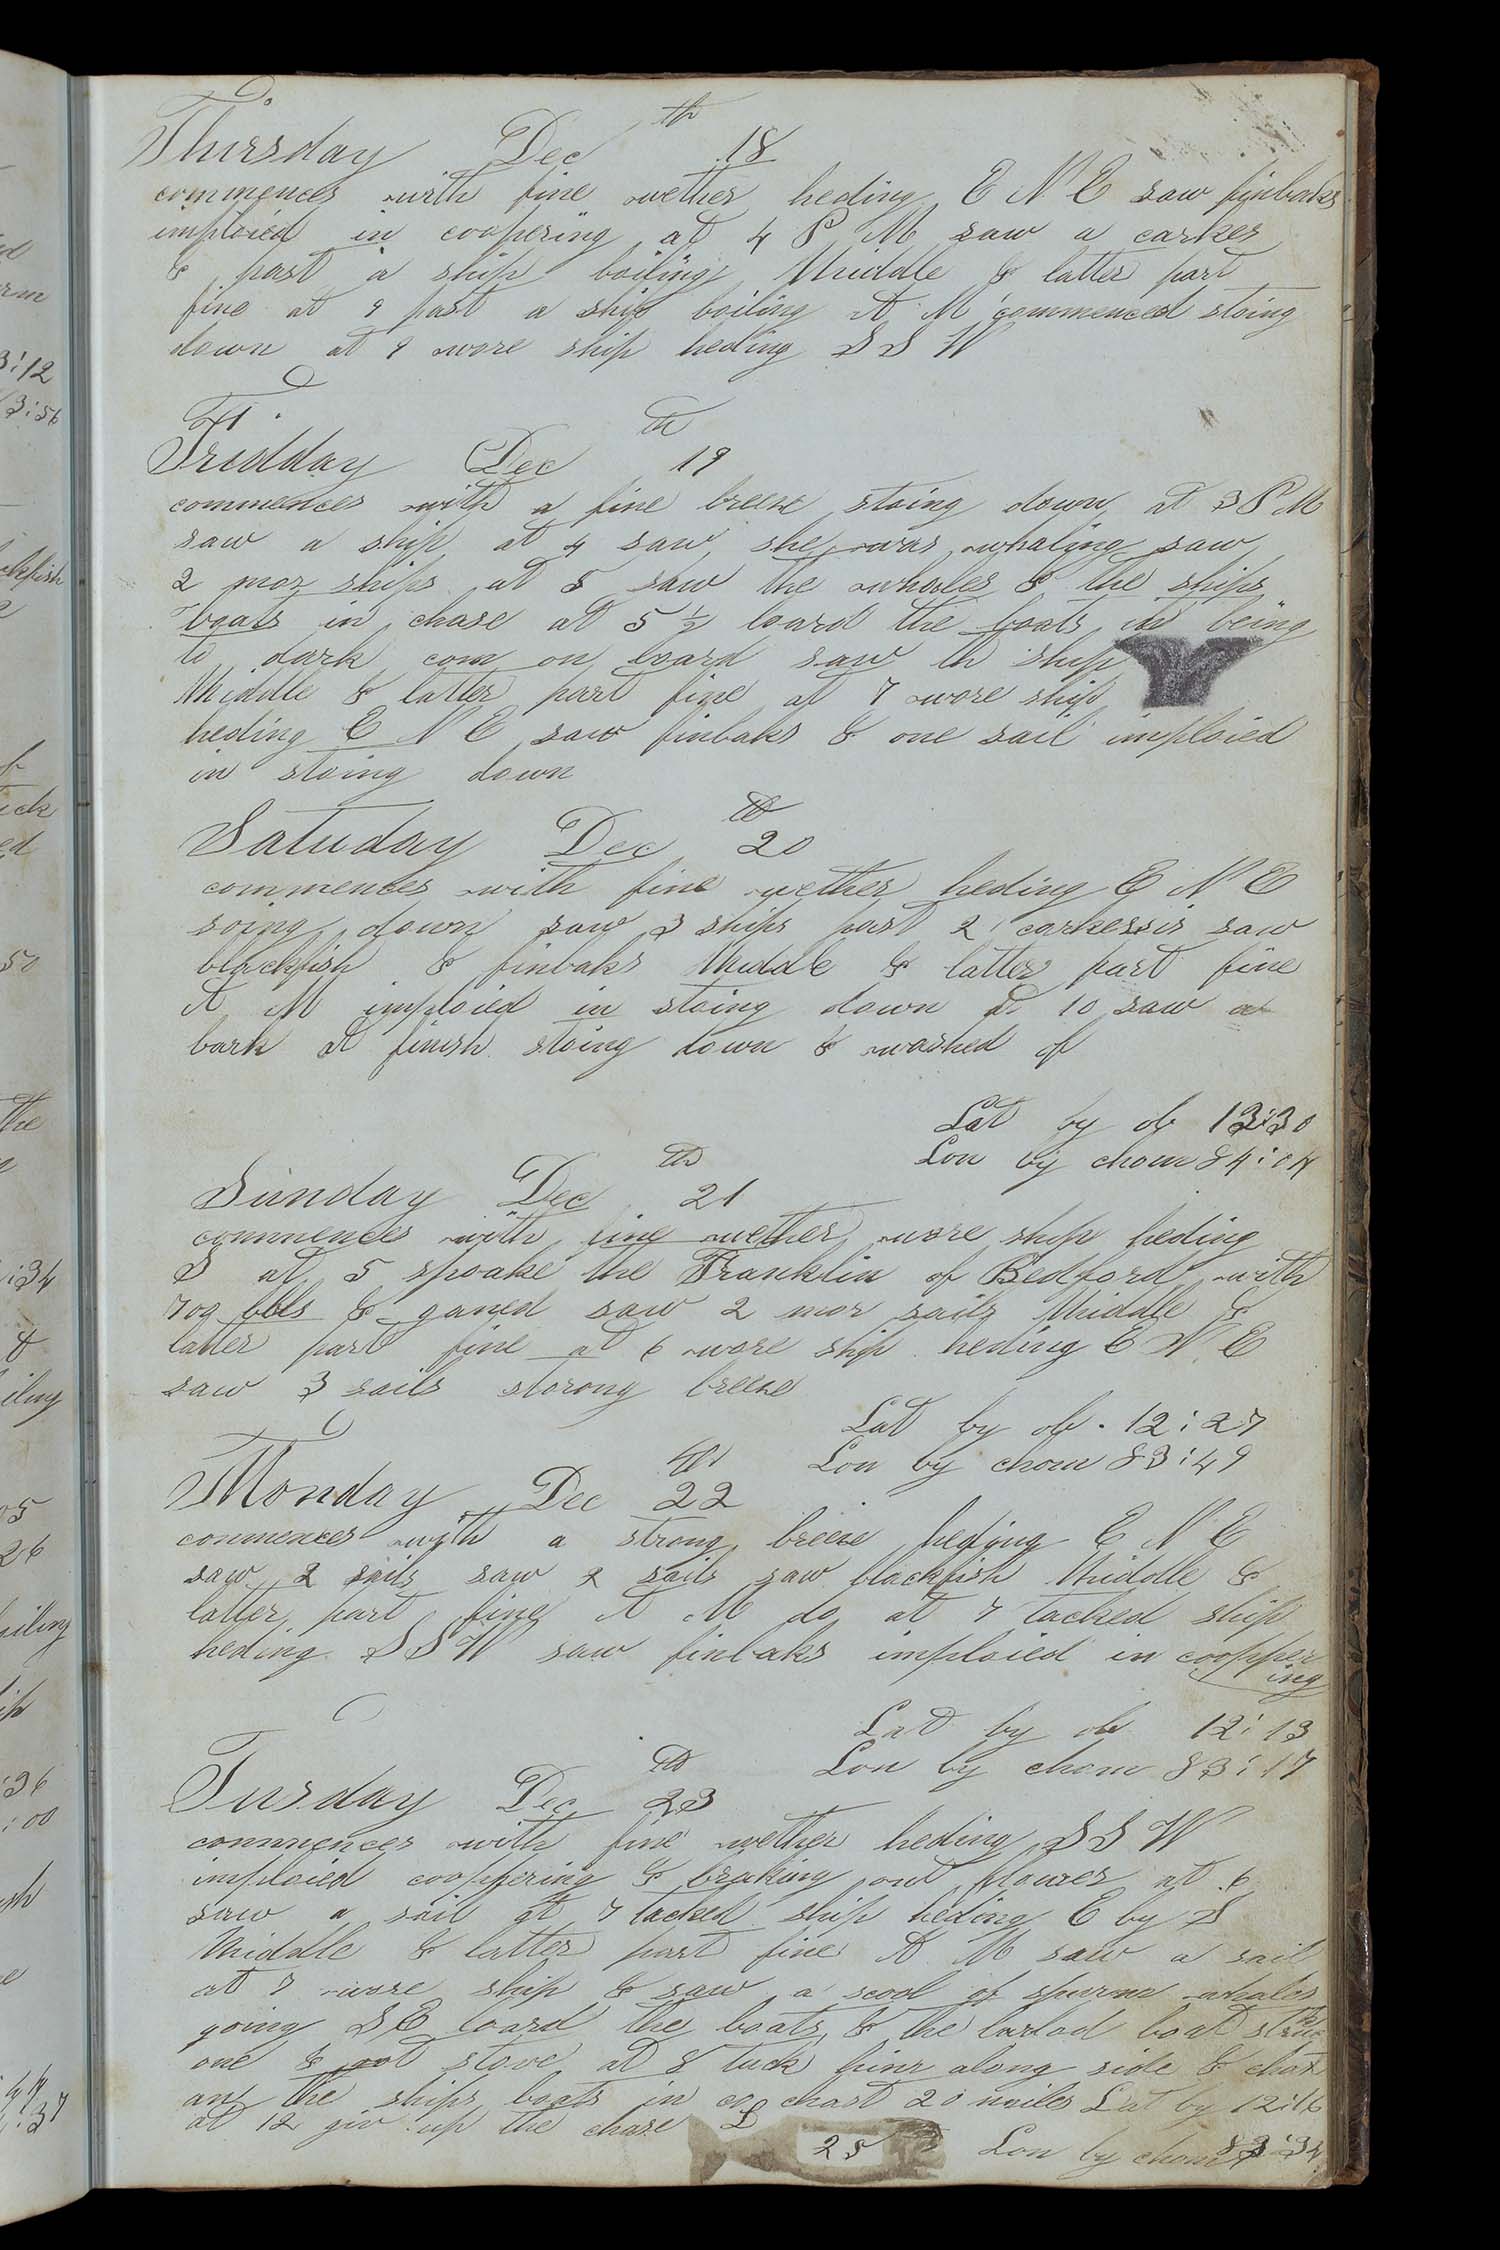 Thursday Dec 18th
commences with fine wether heding E N E saw finbaks
imploied in coopering at 4 P M saw a carkes
& past a ship boiling Middle & latter part
fine at 9 past a ship boiling A M commenced stoing
down at 9 wore ship heding S S W
Fridday Dec 19th
commences with a fine breeze stoing down at 3 P M
saw a ship at 4 saw she was whaling saw
2 mor ships at 5 saw the whales & the ships
boats in chase at 5 ½ loard the boats it being
to dark com on board saw th ship
Middle & latter part fine at 7 wore ship
heding E N E saw finbaks & one sail imploied
in stoing down
Satuday Dec 20th
commences with fine wether heding E N E
soing down saw 3 ships past 2 carkessis saw
blackfish & finbaks Middle & latter part fine
A M imploied in stoing down at 10 saw a
bark at finish stoing down & washed of
Lat by ob 13:30
Lon by chom 84:04
Sunday Dec 21th
commences with fine wether wore ship heding
S at 5 spoake the Franklin of Bedford with
700 bbls & gamed saw 2 mor sails Middle &
latter part fine at 6 wore ship heding E N E
saw 3 sails storong breeze
Lat by ob. 12:27
Lon by chom 83:49
Monday Dec 22th
commences with a strong breeze heding E N E
saw 2 sails saw 2 sails saw blackfish Middle &
latter part fine A M do at 7 tacked ship
heding S S W saw finbaks imploied in coopper
ing
Lat by ob 12:13
Lon by chom 83:17
Tusday Dec 23th
commences with fine wether heding S S W
imploied cooppering & braking out flower at 6
saw a sail at 7 tacked ship heding E by S
Middle & latter part fine A M saw a sail
at 7 wore ship & saw a scool of spurm whales
going S E loard the boats & the larbod boat struck
one & got stove at 8 tuck hinr along side & chast
an the ships boats in co chast 20 miles Lat by 12:16
at 12 giv up the chase
25 Lon by chom 83:34